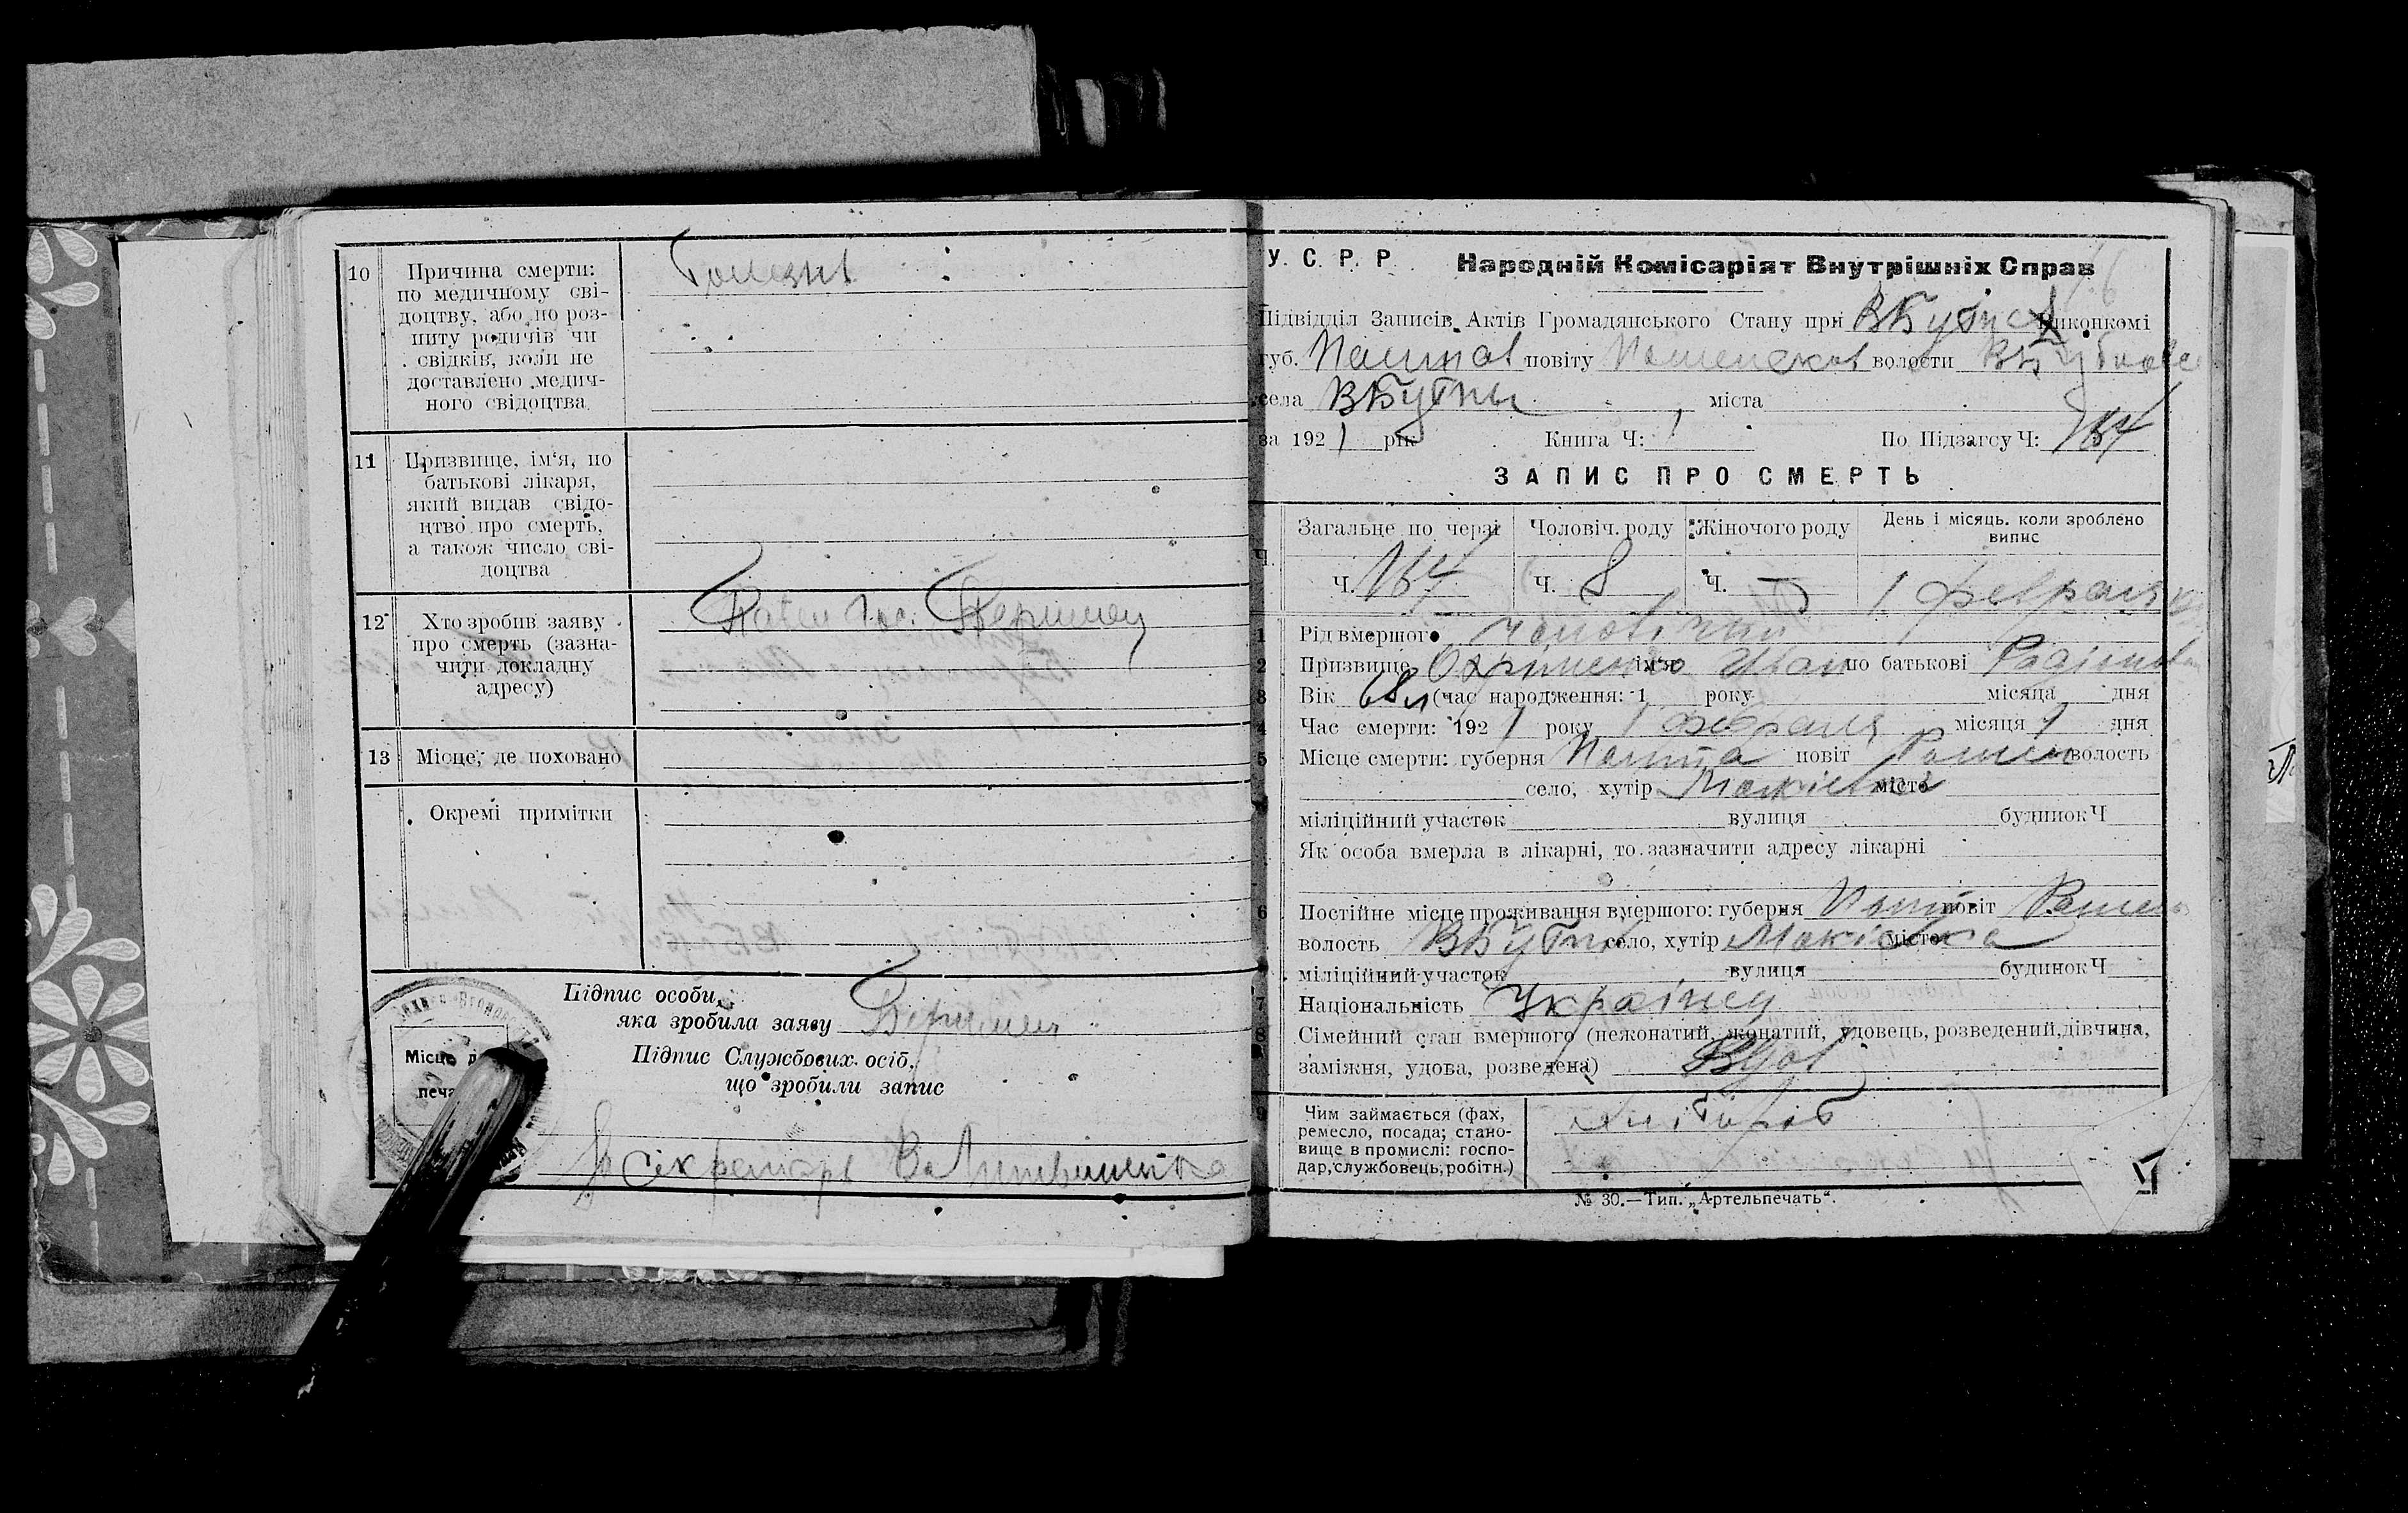 10 Причина смерти:
по медичному сві-
доцтву, або по роз-
питу родичів чи
свідків, коли не
доставлено медич-
ного свідоцтва
11 Призвище, ім‘я, по
батькові лікаря,
який видав свідо-
цтво про смерть,
а також число сві-
доцтва
12 Хто зробив заяву
про смерть (зазна-
чити докладну
адресу)
13 Місце, де поховано
Окремі примітки
Підпис особи,
яка зробила заяву
Підпис Службових осіб,
що зробили запис
Місце д
печа
Секретарь
У. С. Р. Р. Народній Комісаріят Внутрішніх Справ
Підвідділ Записів Актів Громадянського Стану при виконкомі
губ. Полтав повіту волости
села ВБубны міста
за 1921 рік Книга Ч: По Підзагсу Ч: 164
ЗАПИС ПРО СМЕРТЬ
Загальне по черзі Чоловіч. роду Жіночого роду День і місяць. коли зроблено
випис
Ч. 164 Ч. 8 Ч. — 1 февраля
1 Рід вмершого
2 Призвище Охріменко ім‘я Иван по батькові
3 Вік 68 л (час народження: 1 року місяца дня
4 Час смерти: 1921 року 1 февраля місяця 1 дня
5 Місце смерти: губерня Полтва повіт Ромен волость
село, хутір Макіевка місто
міліційний участок вулиця будинок Ч
Як особа вмерла в лікарні, то зазначити адресу лікарні
6 Постійне місце проживання вмершого: губерня Полт повіт Ромен
волость ВБубни село, хутір Макіевка місто
міліційний участок вулиця будинок Ч
7 Національність Украінец
8 Сімейний стан вмершого (нежонатий, жонатий, удовець, розведений, дівчина,
заміжня, удова, розведена) Вдов
9 Чим займається (фах, хлібороб
ремесло, посада; стано-
вище в промислі: госпо-
дар, службовець, робітн.)
№ 30.—Тип. „Артельпечать“.